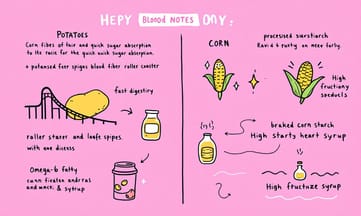 HEPY Blood NOTES ONY:
POTATOES
Corn fibes of fair and quick sugar absorption
to its for the quick sugar absorption.
+ potansed feer spiges blood fiber roller coaster
fast digestıty
roller starer and loafe spipes.
with one dicess
Omega-b fatty
cuan firalen andrral
and & sytrup
CORN
processed sunstıarch
Ravid + fatty on neee forty.
High
fructiony
specducts
braked corn starch
High starty heart syrrup
High fructuze syrrup